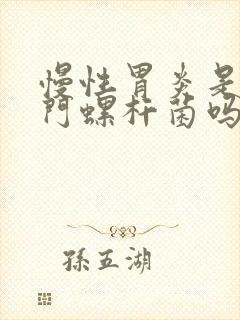 慢性胃炎是
門螺杆菌吗
孫五湖